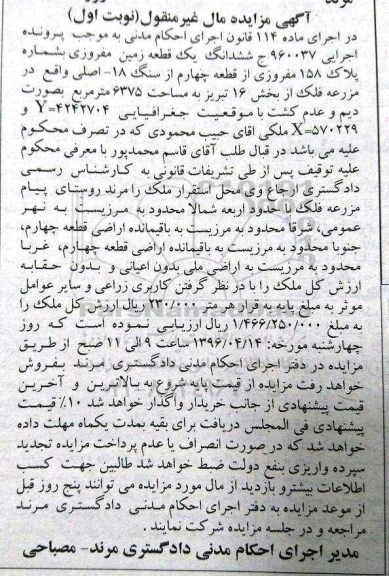 مرند
آگهی مزایده مال غیرمنقول(نوبت اول)
در اجرای ماده ۱۱۴ قانون اجرای احکام مدنی به موجب پرونده
اجرایی ۹۶۰۰۳۷ ج ششدانگ یک قطعه زمین مفروزی بشماره
پلاک ۱۵۸ مفروزی از قطعه چهارم از سنگ ۱۸- اصلی واقع در
مزرعه فلک از بخش ۱۶ تبریز به مساحت ۶۳۷۵ مترمربع بصورت
دیم و عدم کشت با موقعیت جغرافیایی Y=۴۲۴۲۷۰۴ و
X=۵۷۰۲۲۹ ملکی اقای حبیب محمودی که در تصرف محکوم
علیه می باشد در قبال طلب آقای قاسم محمدپور با معرفی محکوم
علیه توقیف پس از طی تشریفات قانونی به کارشناس رسمی
دادگستری ارجاع وی محل استقرار ملک را مرند روستای پیام
مزرعه فلک با حدود اربعه شمالا محدود به مرزیست به نهر
عمومی، شرقا محدود به مرزیست به باقیمانده اراضی قطعه چهارم،
جنوبا محدود به مرزیست به باقیمانده اراضی قطعه چهارم، غربا
محدود به مرزیست به اراضی ملی بدون اعیانی و بدون حقابه
ارزش کل ملک را با در نظر گرفتن کاربری زراعی و سایر عوامل
موثر به مبلغ پایه به قرار هر متر ۲۳۰/۰۰۰ ریال ارزش کل ملک را
به مبلغ ۱/۴۶۶/۲۵۰/۰۰۰ ریال ارزیابی نموده است که روز
چهارشنبه مورخه: ۱۳۹۶/۰۴/۱۴ ساعت ۹ الی ۱۱ صبح از طریق
مزایده در دفتر اجرای احکام مدنی دادگستری مرند بفروش
خواهد رفت مزایده از قیمت پایه شروع به بالاترین و آخرین
قیمت پیشنهادی از جانب خریدار واگذار خواهد شد ۱۰٪ قیمت
پیشنهادی فی المجلس دریافت برای بقیه بمدت یکماه مهلت داده
خواهد شد که در صورت انصراف یا عدم پرداخت مزایده تجدید
سپرده واریزی بنفع دولت ضبط خواهد شد طالبین جهت کسب
اطلاعات بیشترو بازدید از مال مورد مزایده می توانند پنج روز قبل
از موعد مزایده به دفتر اجرای احکام مدنی دادگستری مرند
مراجعه و در جلسه مزایده شرکت نمایند.
مدیر اجرای احکام مدنی دادگستری مرند- مصباحی